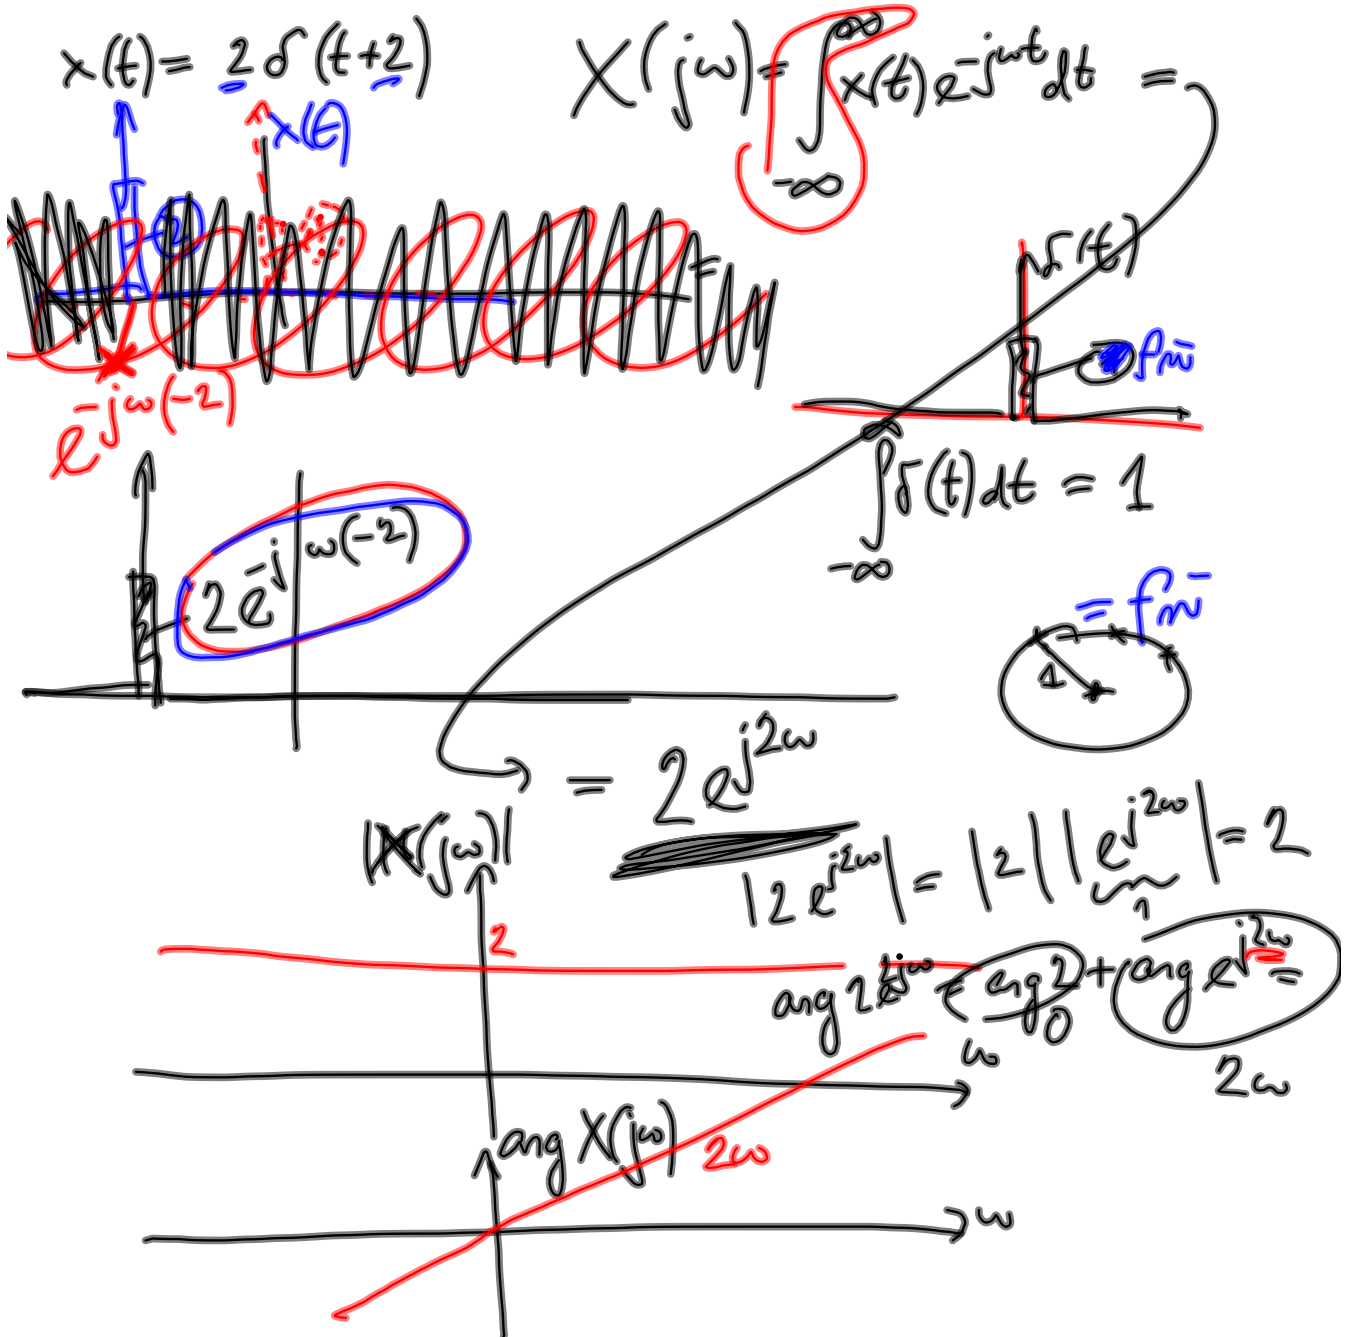 x(t) = 2δ(t+2)
X(jω) = ∫_{-∞}^{∞} x(t) e^{-jωt} dt =
x(t)
2
δ(t)
e^{-jω(-2)}
∫_{-∞}^{∞} δ(t) dt = 1
2e^{-jω(-2)}
1
= 2e^{j2ω}
|X(jω)|
|2e^{j2ω}| = |2| |e^{j2ω}| = 2
1
2
arg 2e^{2jω} = arg 2 + arg e^{j2ω} =
0
2ω
ω
arg X(jω)
2ω
ω